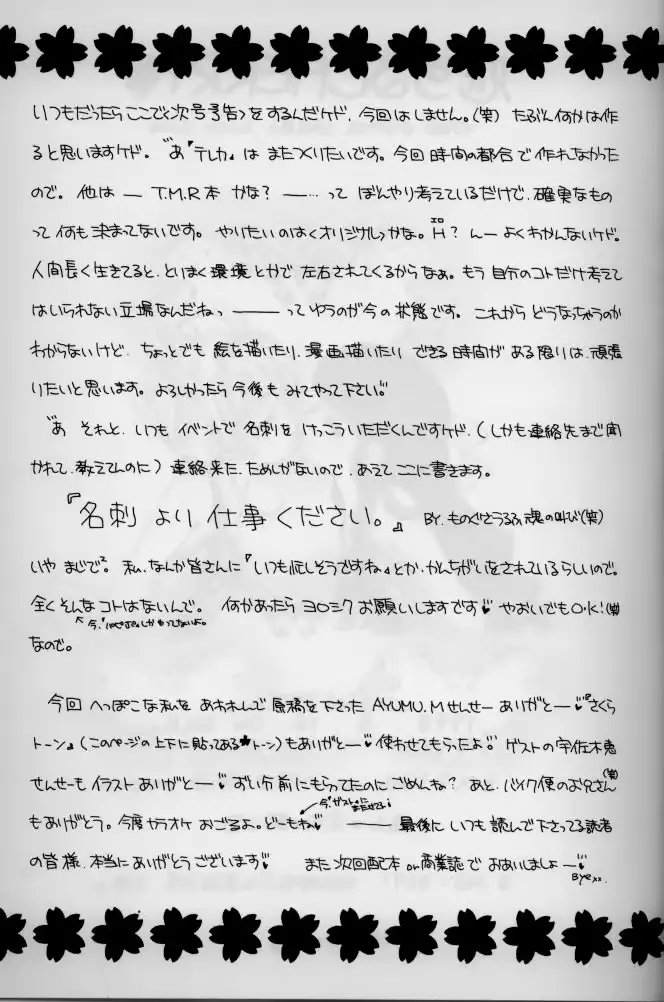 いつもだったらここで<次号予告>をするんだケド、今回はしません。(笑) たぶん何かは作
ると思いますケド。"あ『テレカ』は またつくりたいです。今回 時間の都合で作れなかった
ので。他は ― T.M.R本 かな? ―…って ぼんやり考えているだけで、確実なもの
って何も決まてないです。やりたいのは<オリジナル>かな。H?エロ んーよくわかんないケド。
人間長く生きてると、とりまく環境とかで左右されてくるからなぁ。もう自分のコトだけ考えて
はいられない立場なんだねっ ―― ってゆうのが今の状態です。これからどうなっちゃうのか
わからないけど、ちょっとでも 絵を描いたり、漫画描いたり できる時間が ある限りは、頑張
りたいと思います。よろしかったら今後も みてやって下さい。
"あ それと、いつも イベントで 名刺を けっこういただくんですケド、(しかも連絡先まで聞
かれて、教えてんのに)連絡来た、ためしがないので、あえて ここに書きます。
『名刺 より 仕事ください。』 BY.ものぐさうるふ魂の叫び(笑)
いや まじで。私、なんか皆さんに『いつも忙しそうですね』とか、かんちがいをされているらしいので。
全くそんなコトはないんで。何かあったら ヨロシク お願いしますです♥ やおいでもO.K!(笑)
しかやってないよ。
なので。
今回 へっぽこな私を あわれんで 原稿を下さった AYUMU.Mせんせー ありがとー♥『さくら
トーン』(このページの上下に貼ってある トーン)もありがとー♥使わせてもらったよ! ゲストの宇佐木恵
せんせーも イラスト ありがとー♥ ずい分前にもらってたのに ごめんね? あと、バイク便のお兄さん(笑)
←今、ゲストに
もありがとう。今度カラオケ おごるよ。どーもね♥ ―― 最後に いつも 読んで下さってる読者
の皆様、本当にありがとうございます♥ また次回配本 or商業誌で おあいしましょー♥
Bye××.